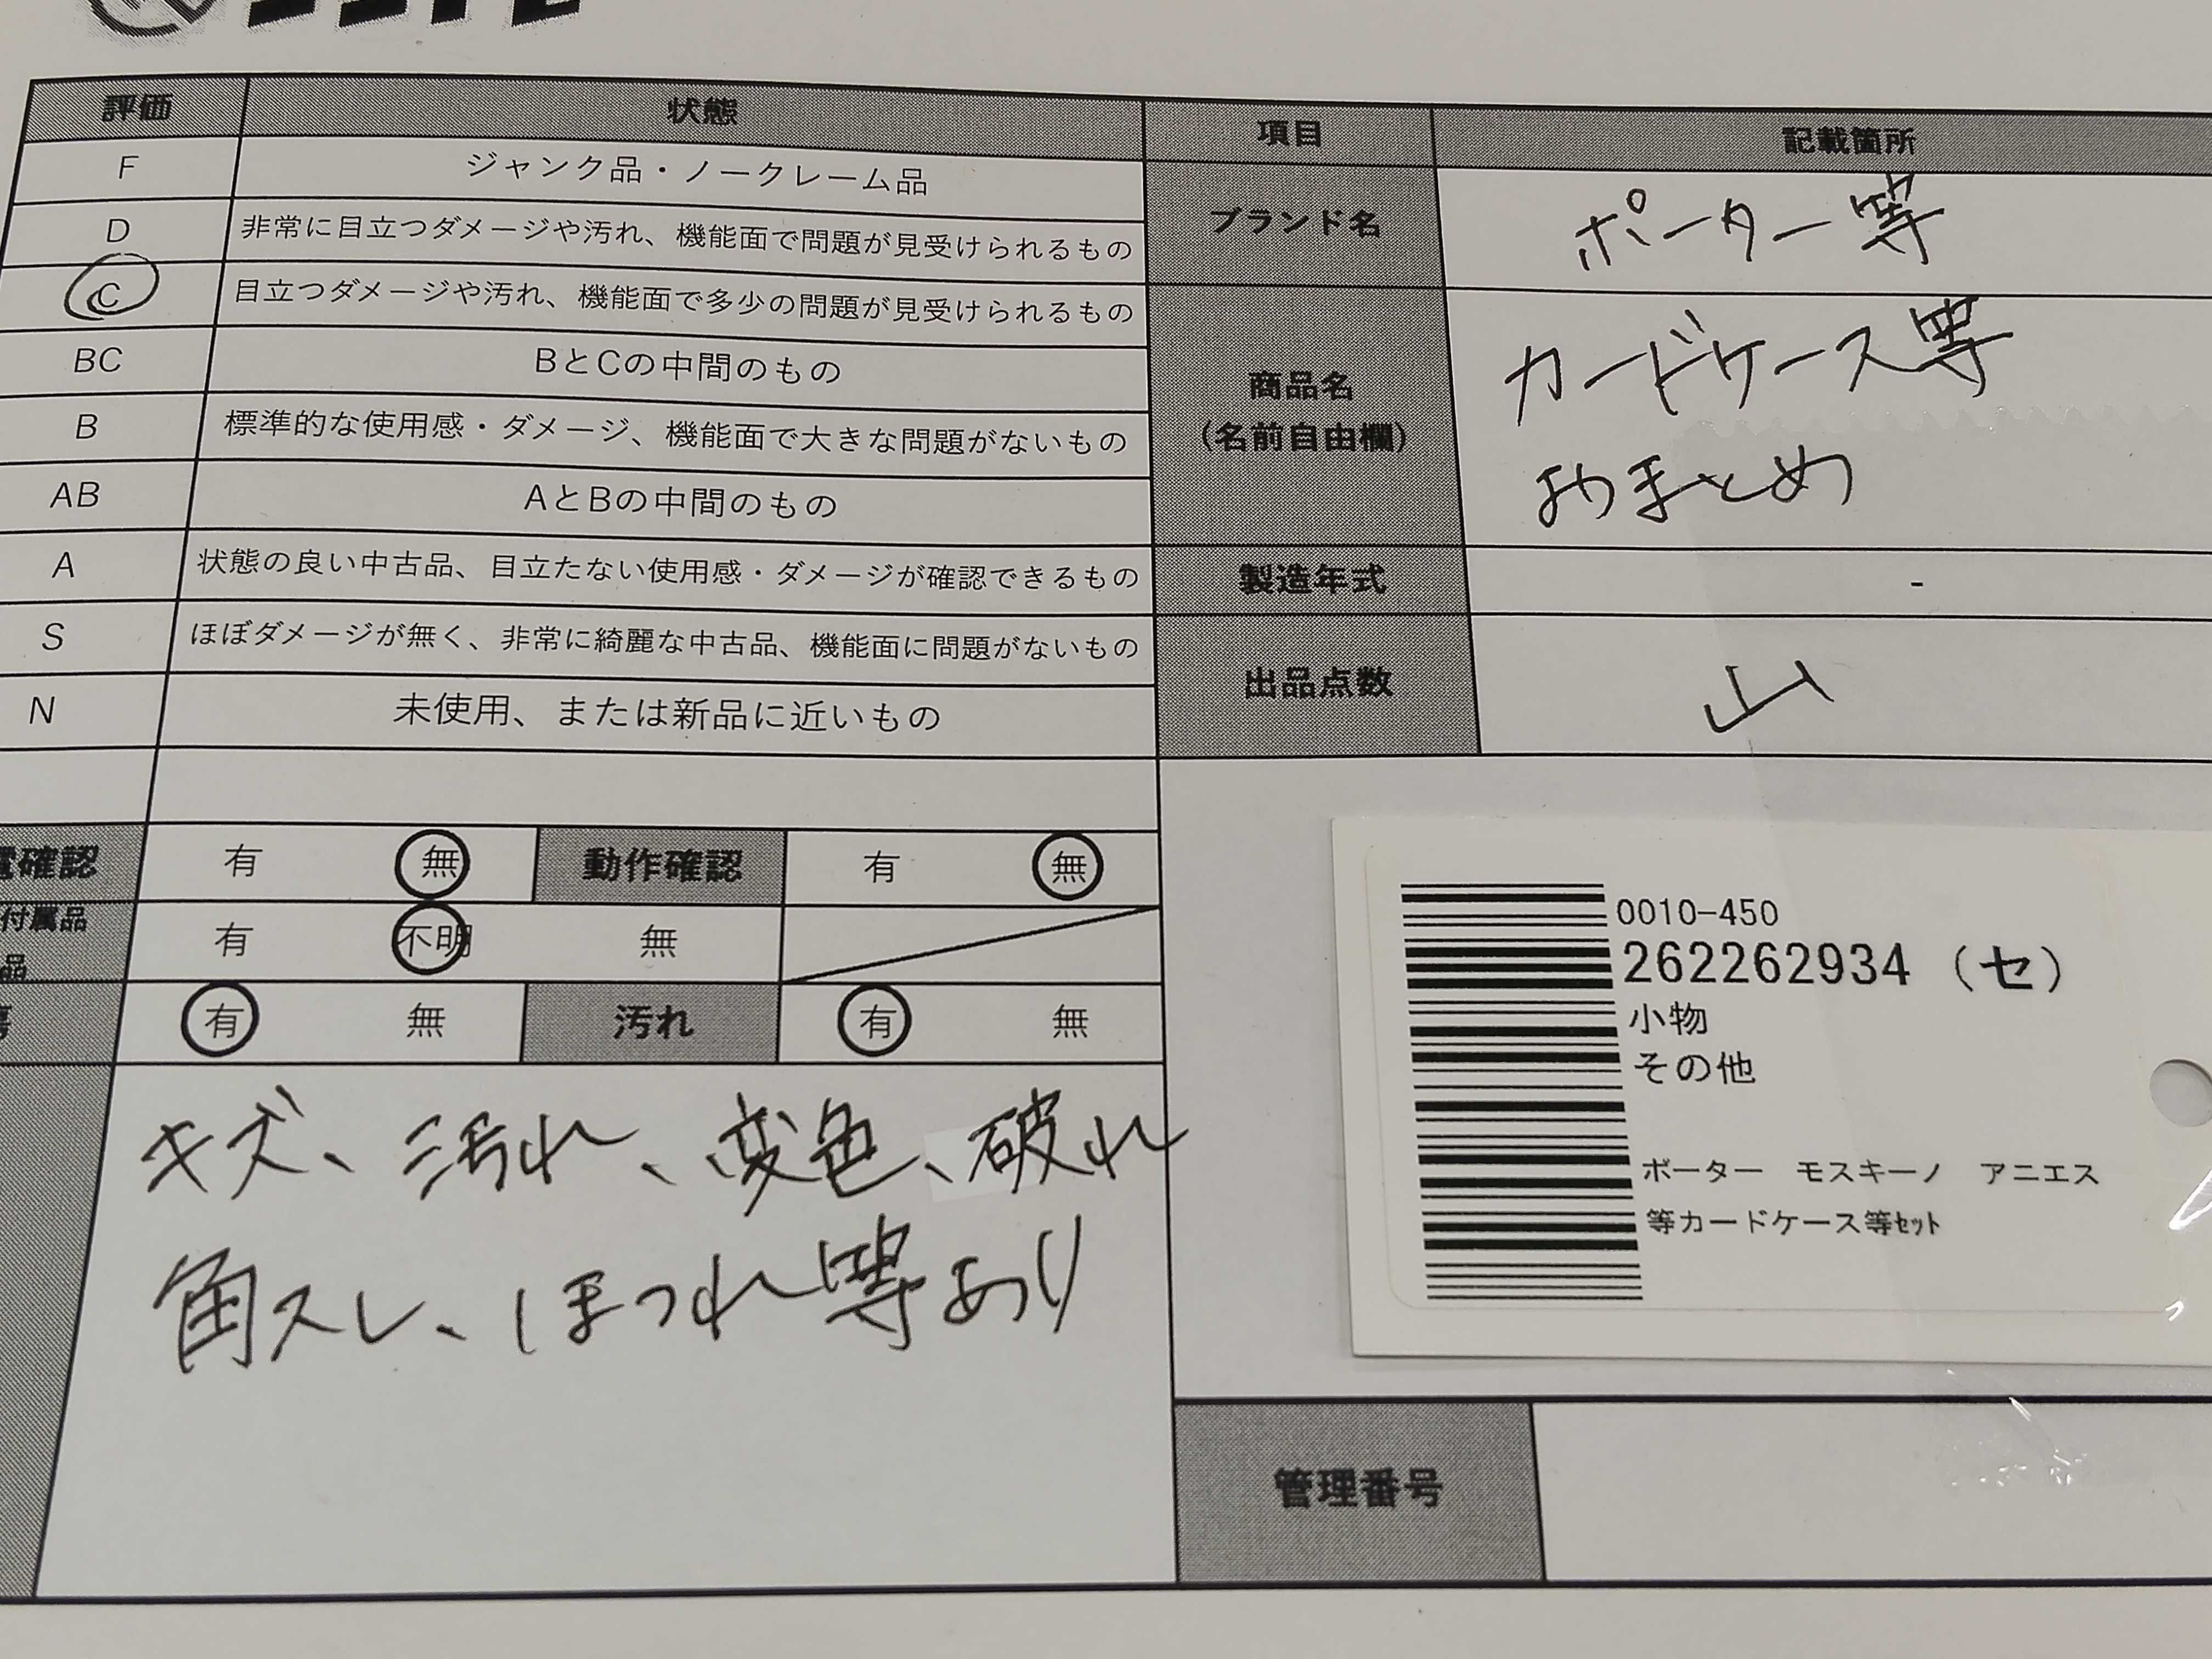 評価 状態
F ジャンク品・ノークレーム品
D 非常に目立つダメージや汚れ、機能面で問題が見受けられるもの
C 目立つダメージや汚れ、機能面で多少の問題が見受けられるもの
BC BとCの中間のもの
B 標準的な使用感・ダメージ、機能面で大きな問題がないもの
AB AとBの中間のもの
A 状態の良い中古品、目立たない使用感・ダメージが確認できるもの
S ほぼダメージが無く、非常に綺麗な中古品、機能面に問題がないもの
N 未使用、または新品に近いもの
項目 記載箇所
ブランド名 ポーター等
商品名 カードケース等
(名前自由欄) おまとめ
製造年式 -
出品点数 山
確認 有 無 動作確認 有 無
付属品 有 不明 無
品
有 無 汚れ 有 無
キズ、汚れ、変色、破れ
角スレ、ほつれ等あり
0010-450
262262934 (セ)
小物
その他
ポーター モスキーノ アニエス
等カードケース等ｾｯﾄ
管理番号